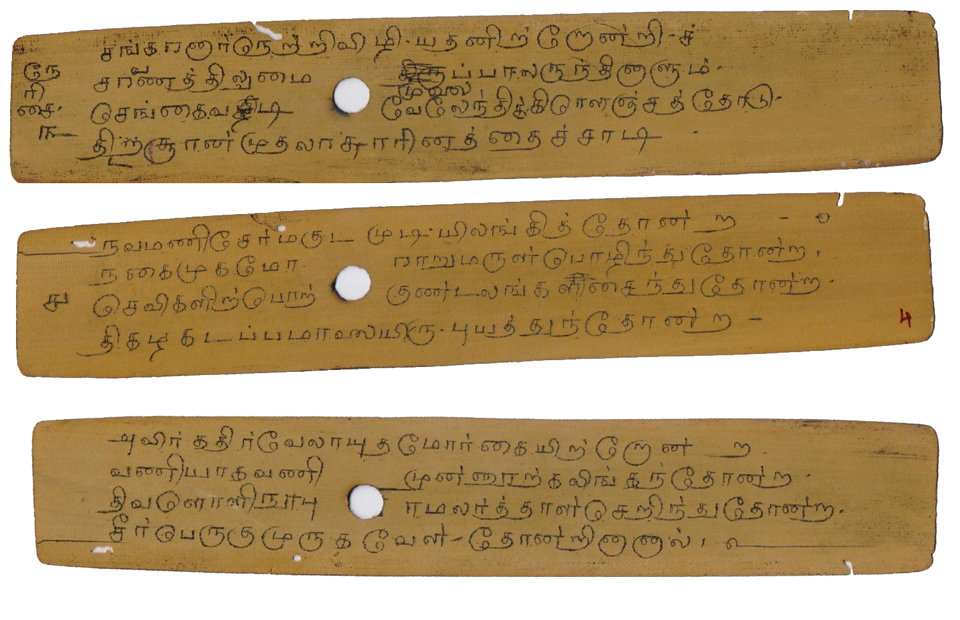 சங்கரனார்நெற்றிவிழி. யதனிற்றோன்றி-ச்
சரவணத்திலுமை முலைப்பாலருந்தினானும்.
செங்கைவடி வேலேந்திக்கிளஞ்சத்தோடு.
திறற்சூரன்முதலாசூரரினத்தைச்சாடி
நேரிசை.
நவமணிசேர்மகுட முடியிலங்கித்தோன்ற -
நகைமுகமோ ராறுமருள்பொழிந்துதோன்ற.
செவிகளிற்பொற் குண்டலங்களிசைந்துதோன்ற.
திகழ்கடப்பமாலையிரு.புயத்துந்தோன்ற -
து
4
அவிர்கதிர்வேலாயுதமோர்கையிற்றோன்ற.
வணியாகவணி முன்னூற்கலிங்கந்தோன்ற.
திவளொளிநூபு ரமலர்த்தாள்செறிந்துதோன்ற.
சீர்பெருகுமுருகவேள்-தோன்றினானால். உ